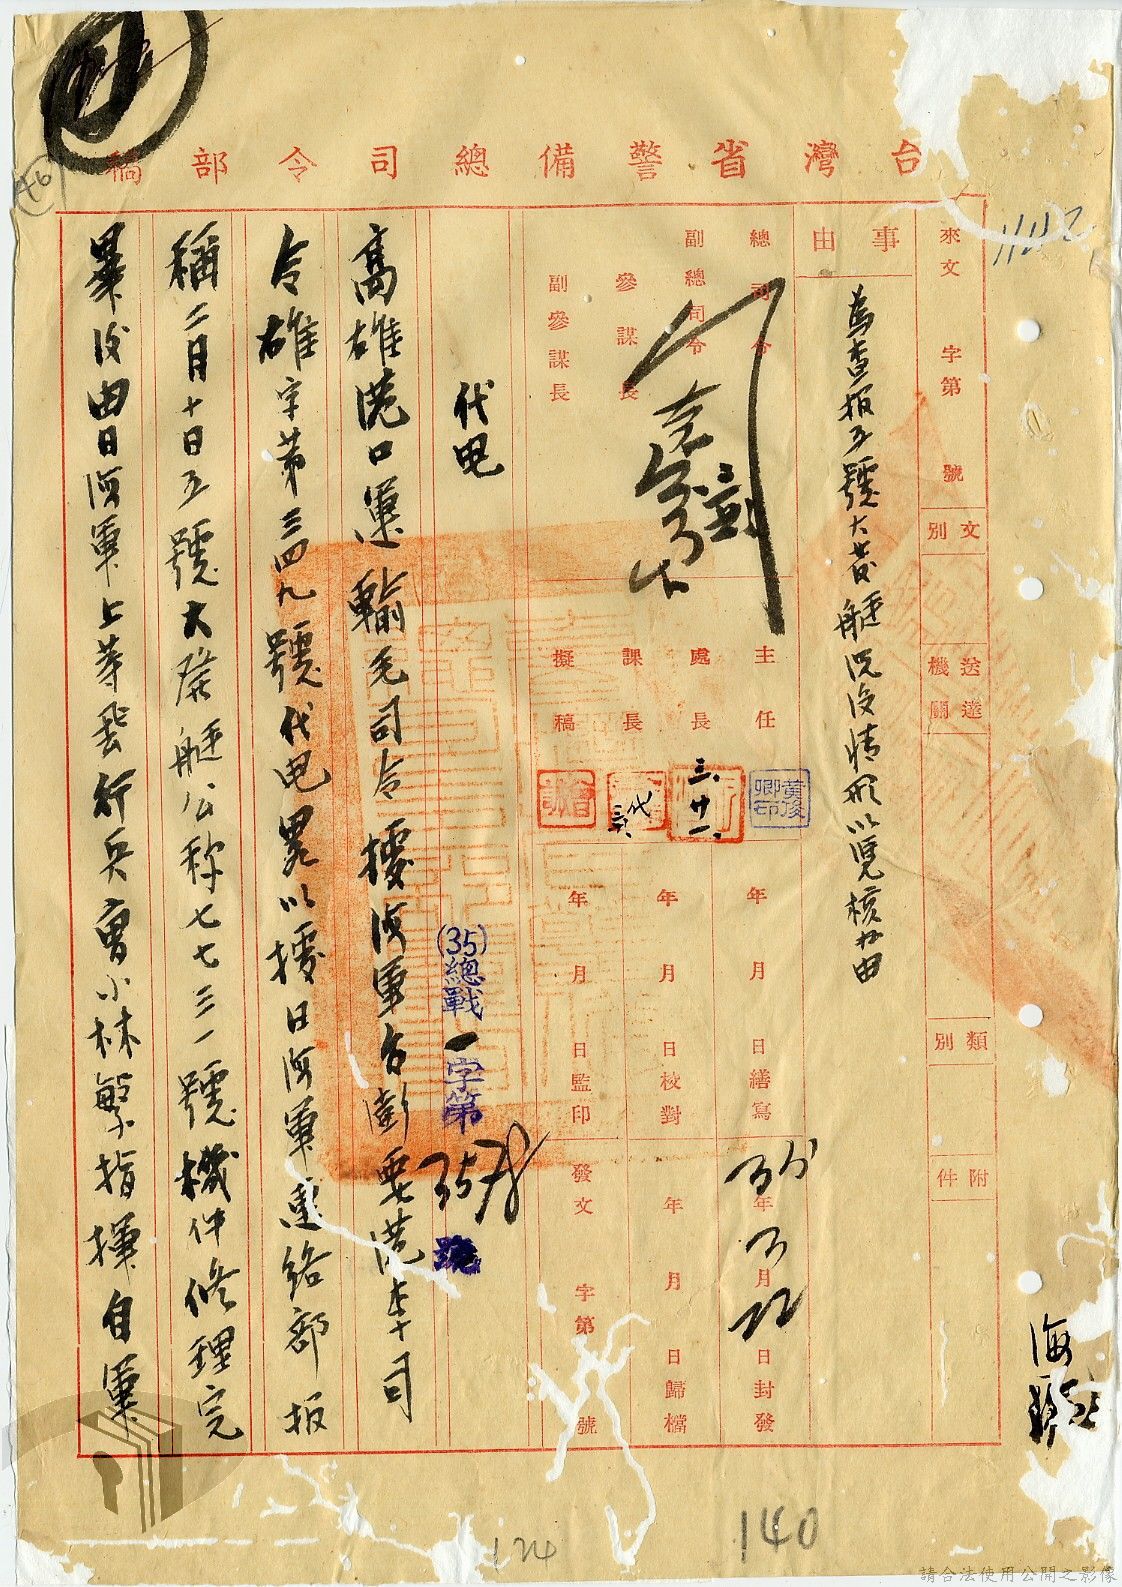 台灣省警備總司令部稿
來文 字第 號
文別
送達機關
類別
附件
事由
為查报五號大發艇沉没情形以憑核办由
總司令
副總司令
參謀長
副參謀長
主任
處長
課長
擬稿
三、廿一、
黃俊卿印
年 月 日繕寫
年 月 日校對
年 月 日監印
35年3月22日封發
年 月 日歸檔
發文 字第 號
(35)總戰一字第3578號
代电
高雄港口運輸毛司令 據海軍台澎要港李司
令雄字第三四九號代电畧以據日海軍連絡部报
稱二月十日五號大發艇公称七七三一號機件修理完
畢後由日海軍上等飛行兵曹小林繁指揮自軍
海
140
124
46
請合法使用公開之影像